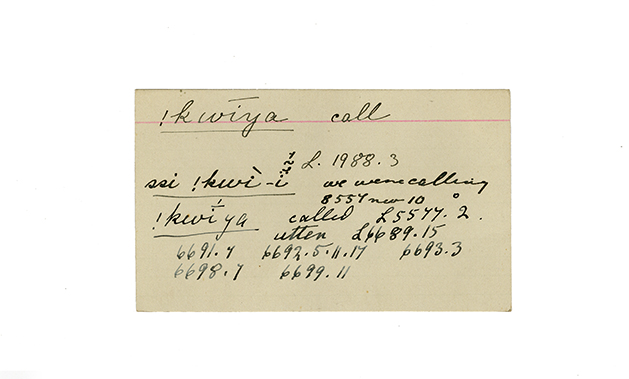 !kwīya call
L. 1988.3
ssi !kwì-i we were calling
8557 rev 10
!kwī́ya called L5577.2.
utter L6689.15
6691.7 6692.5.11.17 6693.3
6698.7 6699.11